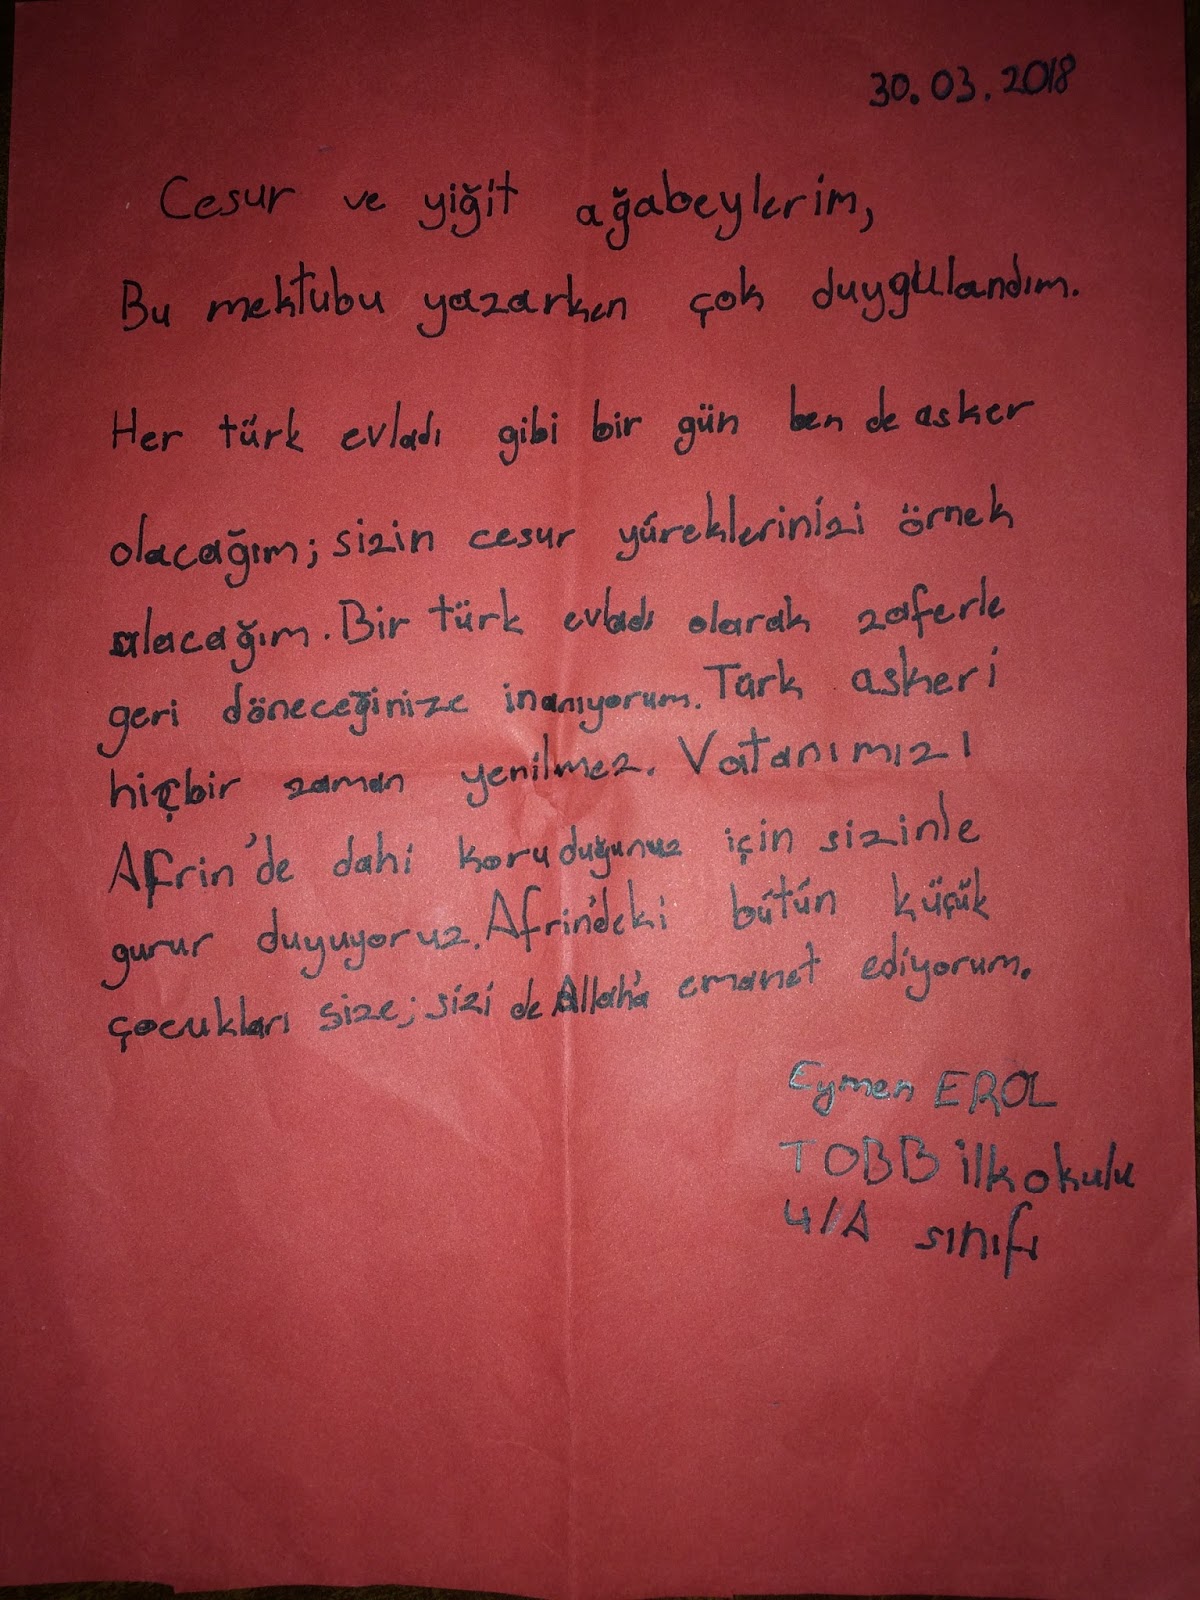 30.03.2018
Cesur ve yiğit ağabeylerim,
Bu mektubu yazarken çok duygulandım.
Her türk evladı gibi bir gün ben de asker
olacağım; sizin cesur yüreklerinizi örnek
alacağım. Bir türk evladı olarak zaferle
geri döneceğinize inanıyorum. Türk askeri
hiçbir zaman yenilmez. Vatanımızı
Afrin'de dahi koruduğunuz için sizinle
gurur duyuyoruz. Afrin'deki bütün küçük
çocukları size; sizi de Allah'a emanet ediyorum.
Eymen EROL
TOBB ilkokulu
4/A sınıfı